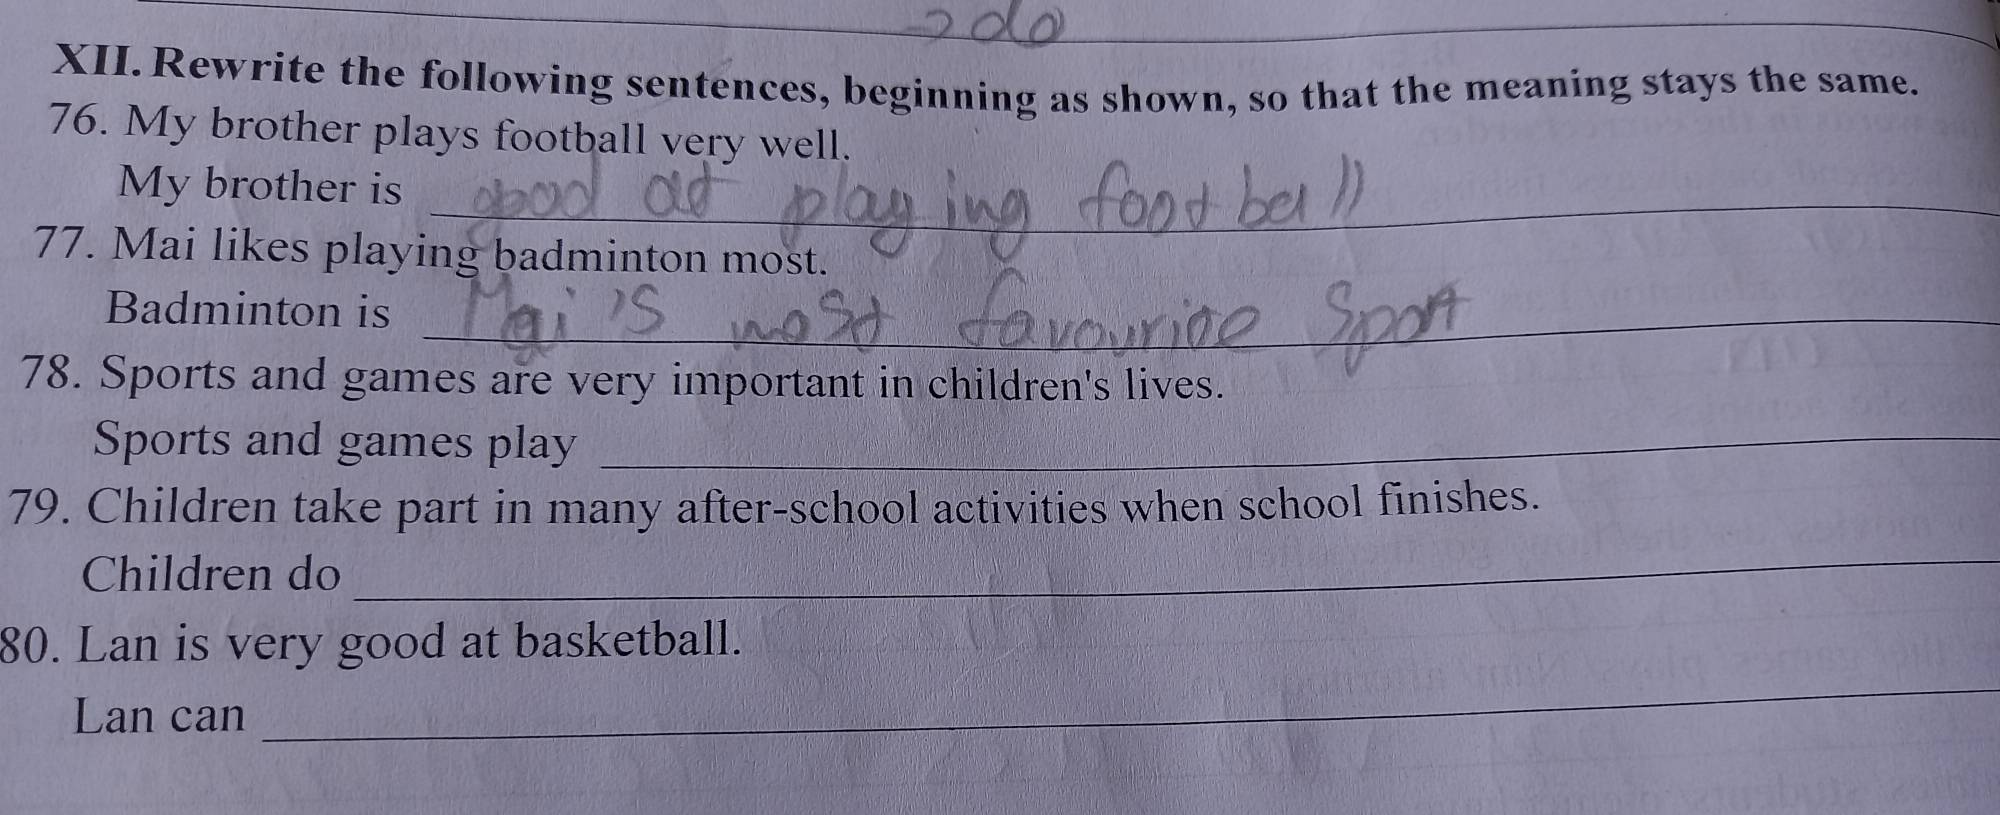 → do
XII. Rewrite the following sentences, beginning as shown, so that the meaning stays the same.
76. My brother plays football very well.
My brother is good at playing football
77. Mai likes playing badminton most.
Badminton is Mai's most favourite Sport
78. Sports and games are very important in children's lives.
Sports and games play
79. Children take part in many after-school activities when school finishes.
Children do
80. Lan is very good at basketball.
Lan can